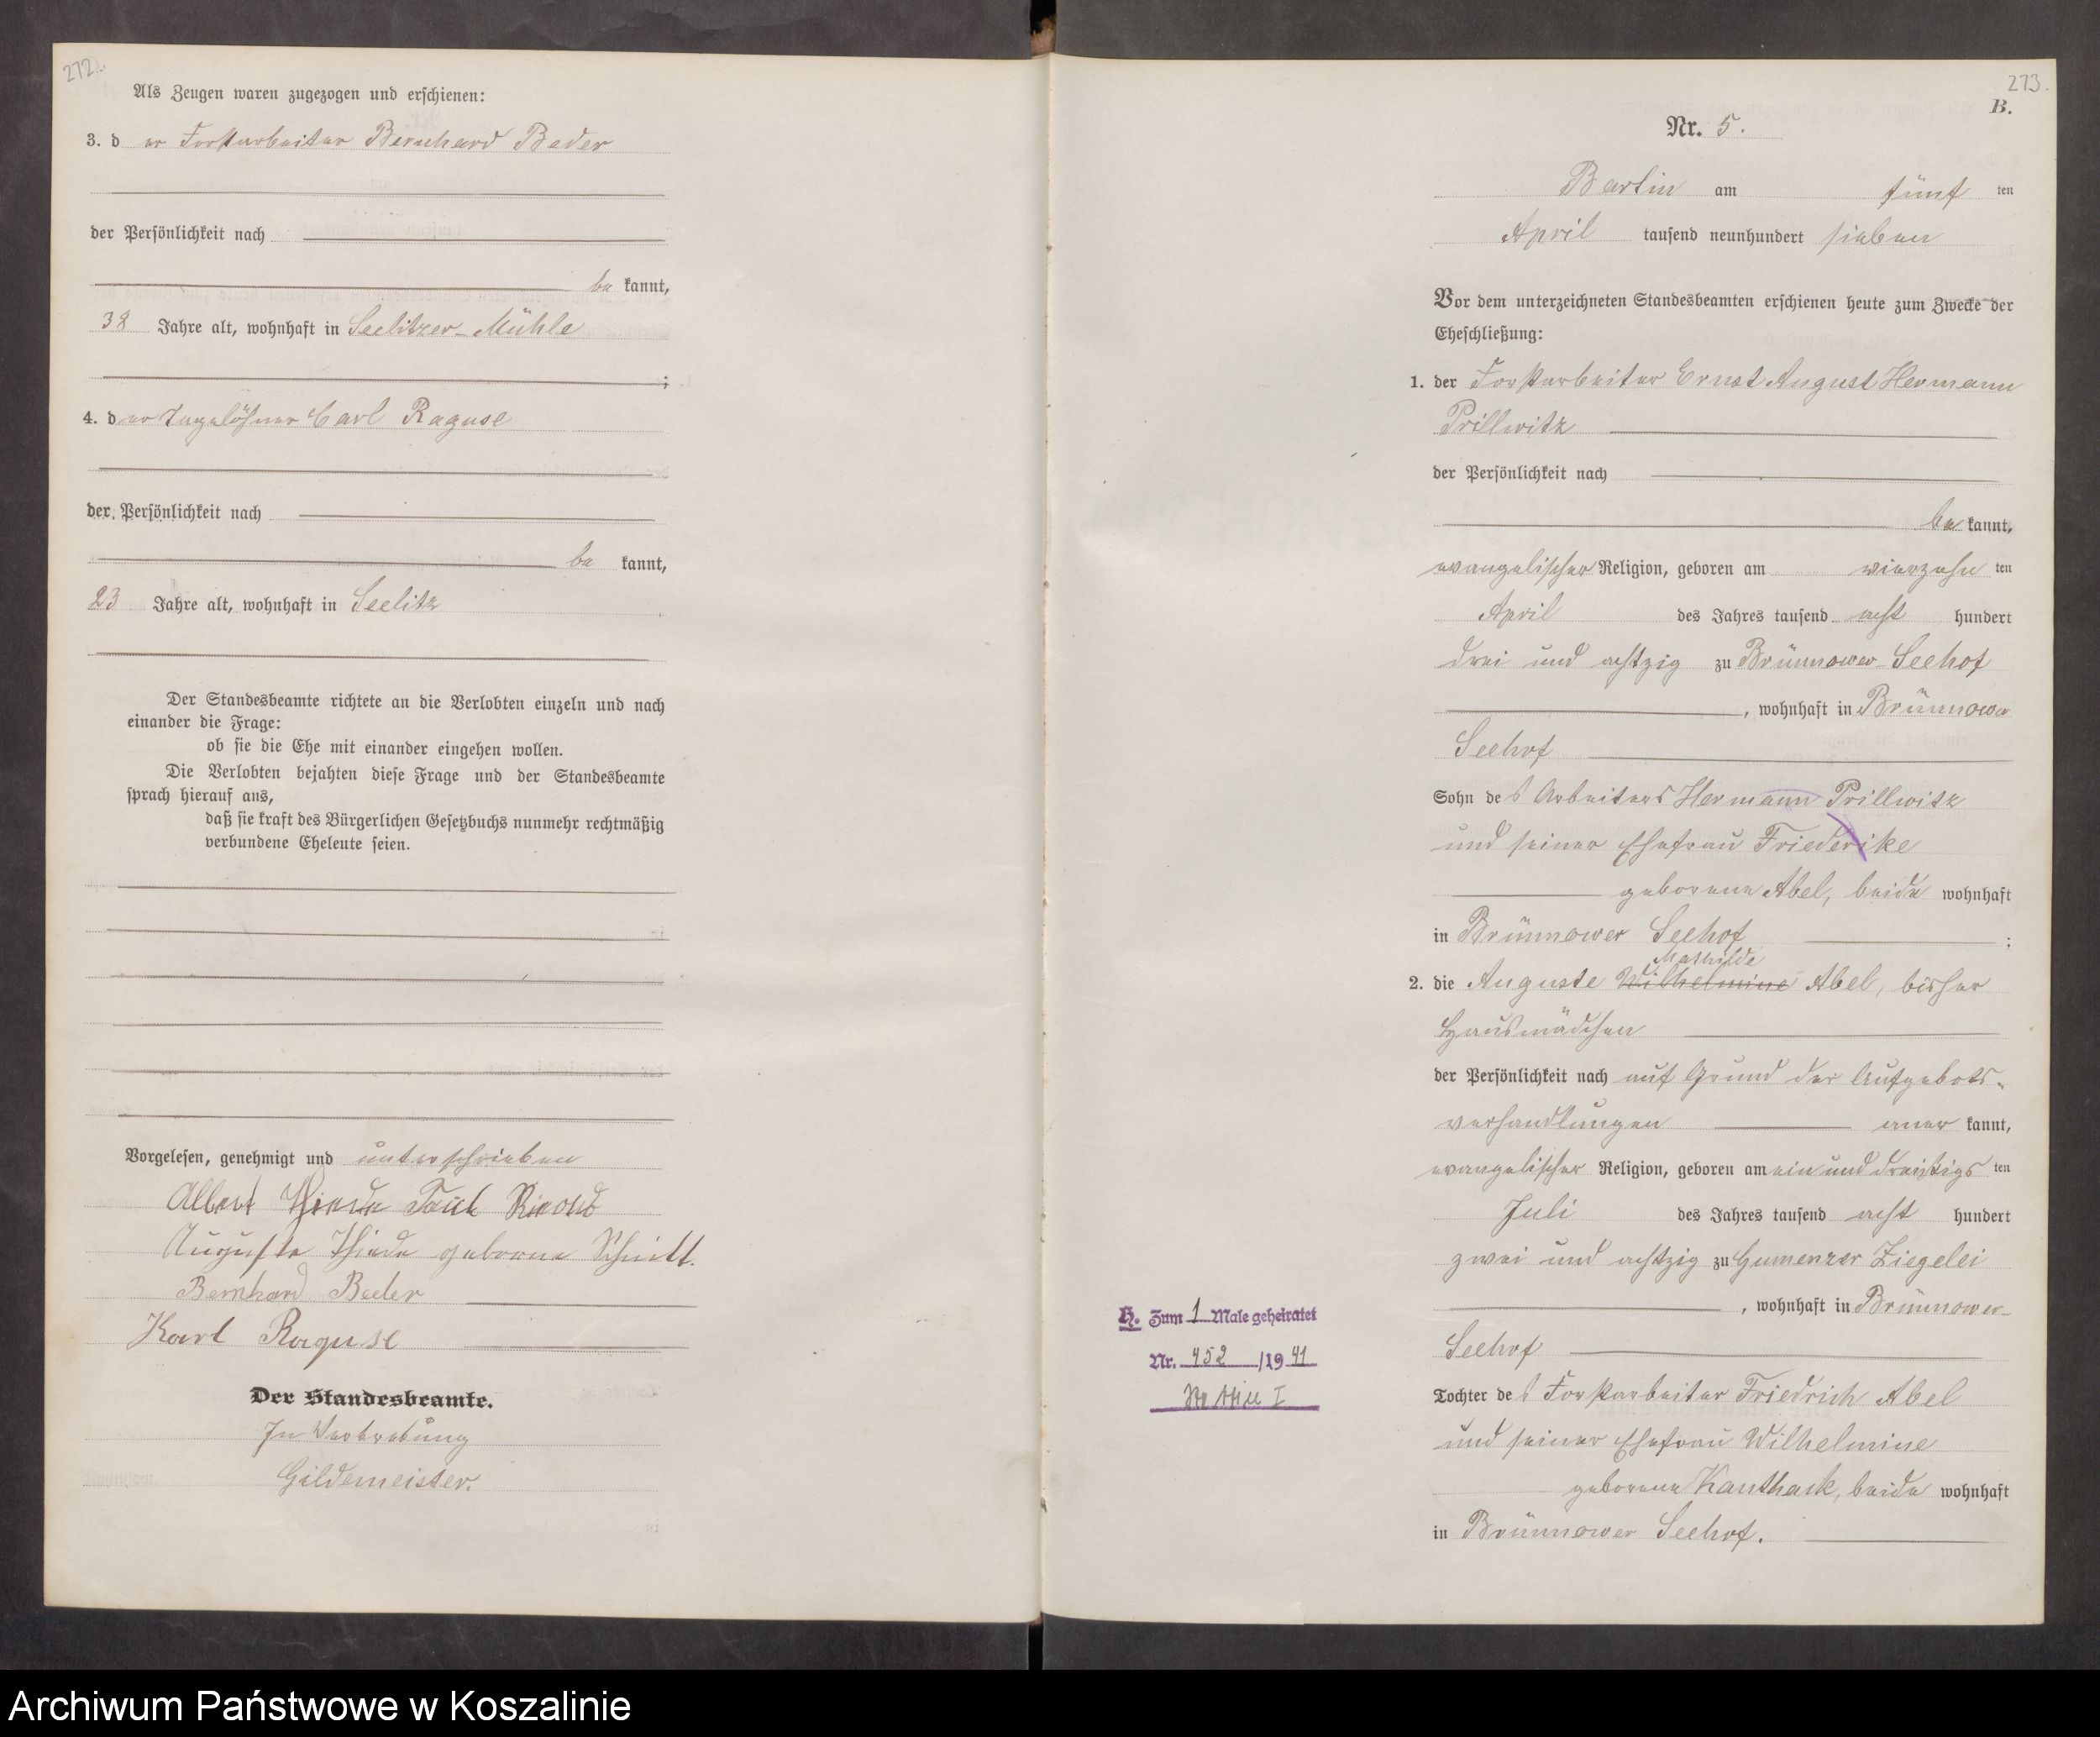 272.
Als Zeugen waren zugezogen und erschienen:
3. der Forstarbeiter Bernhard Beder
der Persönlichkeit nach
bekannt,
38 Jahre alt, wohnhaft in Seelitzer-Mühle
;
4. der Tagelöhner Carl Raguse
der Persönlichkeit nach
bekannt,
23 Jahre alt, wohnhaft in Seelitz
Der Standesbeamte richtete an die Verlobten einzeln und nach
einander die Frage:
ob sie die Ehe mit einander eingehen wollen.
Die Verlobten bejahten diese Frage und der Standesbeamte
sprach hierauf aus,
daß sie kraft des Bürgerlichen Gesetzbuchs nunmehr rechtmäßig
verbundene Eheleute seien.
Vorgelesen, genehmigt und unterschrieben
Albert
Auguste Thiede geborne Schmitt.
Bernhard Beder
Karl Raguse
Der Standesbeamte.
In Vertretung
Gildemeister.
273.
B.
Nr. 5.
Bartin am fünften
April tausend neunhundert sieben
Vor dem unterzeichneten Standesbeamten erschienen heute zum Zwecke der
Eheschließung:
1. der Forstarbeiter Ernst August Hermann
Prillwitz
der Persönlichkeit nach
bekannt,
evangelischer Religion, geboren am vierzehnten
April des Jahres tausend acht hundert
drei und achtzig zu Brünnower-Seehof
, wohnhaft in Brünnower
Seehof
Sohn des Arbeiters Hermann Prillwitz
und seiner Ehefrau Friederike
geborene Abel, beide wohnhaft
in Brünnower Seehof ;
Mathilde
2. die Auguste Wilhelmine Abel, bisher
Hausmädchen
der Persönlichkeit nach auf Grund der Aufgebots-
verhandlungen anerkannt,
evangelischer Religion, geboren am ein und dreißigsten
Juli des Jahres tausend acht hundert
zwei und achtzig zu Gumenzer Ziegelei
, wohnhaft in Brünnower-
Seehof
Tochter des Forstarbeiter Friedrich Abel
und seiner Ehefrau Wilhelmine
geborene Kanthack, beide wohnhaft
in Brünnower Seehof.
H. Zum 1 Male geheiratet
Nr. 452 /1941
Stettin I
Archiwum Państwowe w Koszalinie